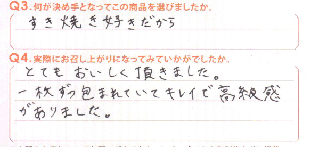 Q3.何が決め手となってこの商品を選びましたか。
すき焼き好きだから
Q4.実際にお召し上がりになってみていかがでしたか。
とてもおいしく頂きました。
一枚ずつ包まれていてキレイで高級感
がありました。